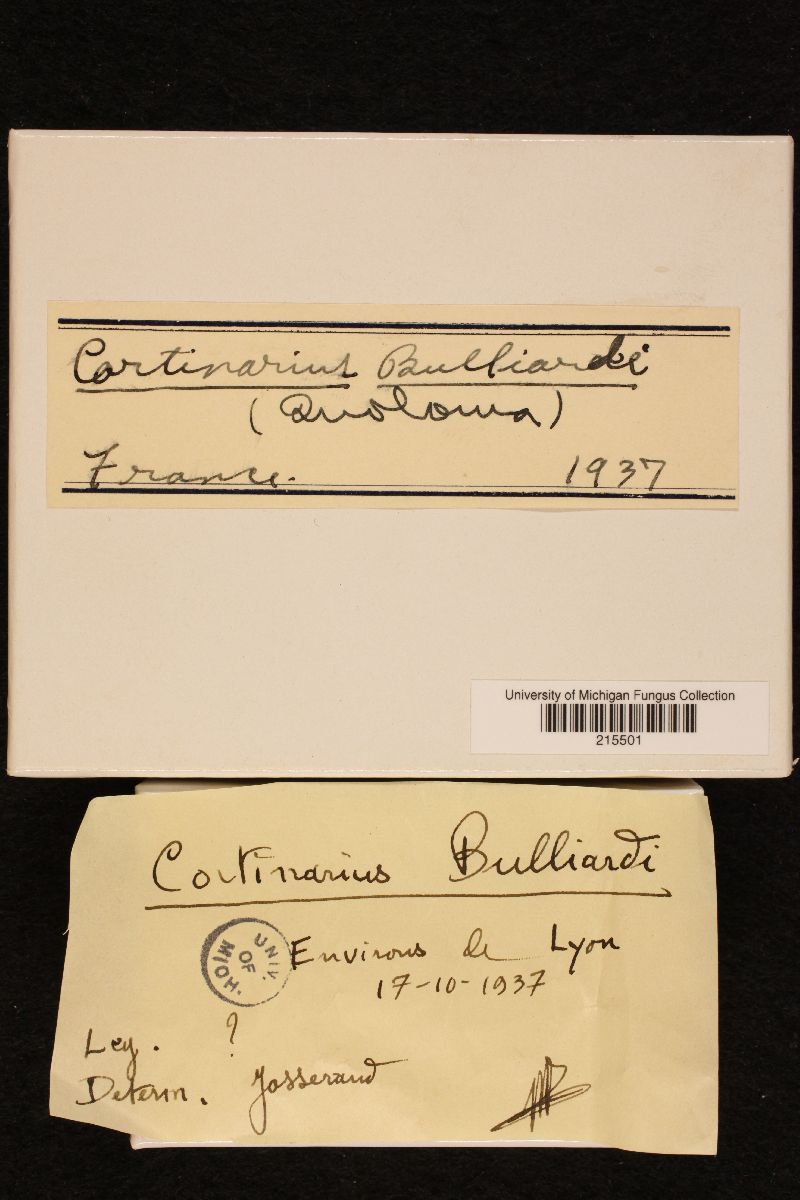 Cortinarius Bulliardi
(Inoloma)
France. 1937
University of Michigan Fungus Collection
215501
Cortinarius Bulliardi
UNIV. OF MICH.
Environs de Lyon
17-10-1937
Leg. ?
Determ. Josserand